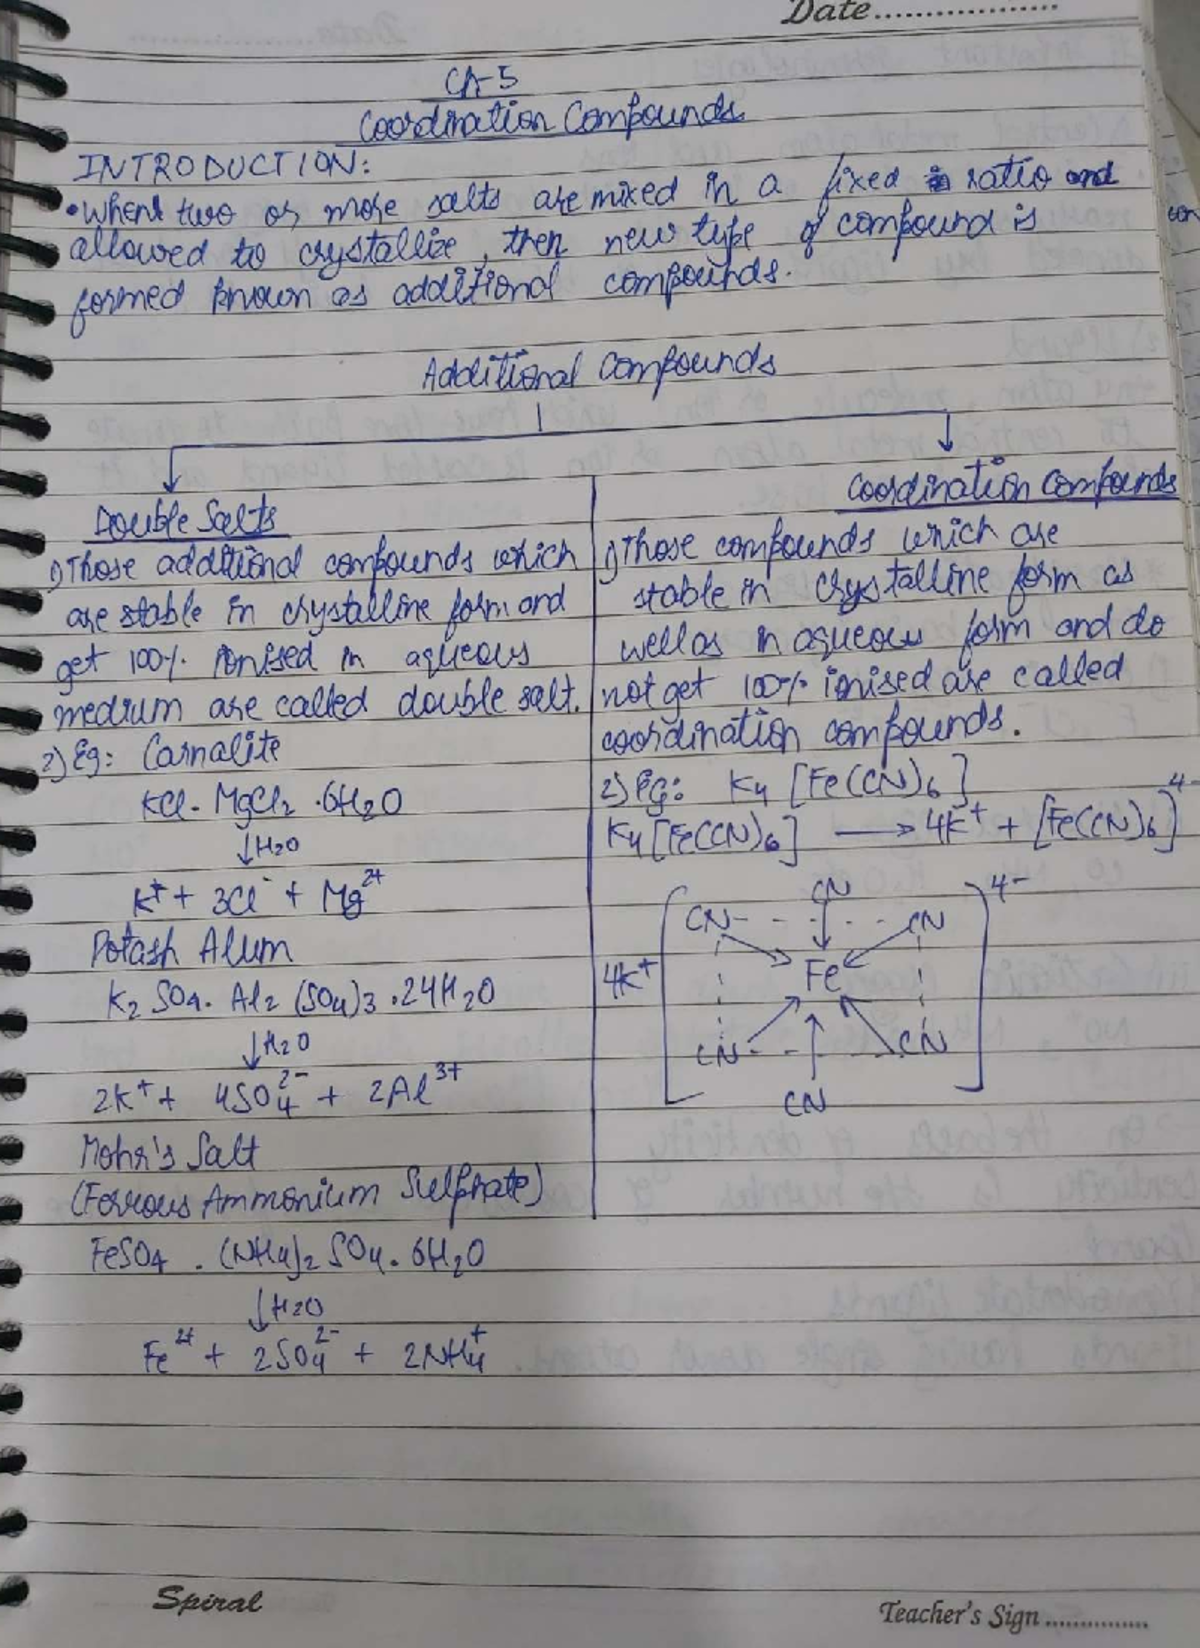 Date..................
CH-5
Coordination Compounds
INTRODUCTION:
• When two or more salts are mixed in a fixed ratio and
allowed to crystallize, then new type of compound is
formed known as additional compounds.
Additional Compounds
Double Salts
1) Those additional compounds which
are stable in crystalline form and
get 100% ionised in aqueous
medium are called double salt.
2) Eg: Carnalite
KCl. MgCl2 .6H2O
↓H2O
K+ + 3Cl- + Mg2+
Potash Alum
K2 SO4. Al2 (SO4)3 .24H2O
↓H2O
2K+ + 4SO4 2- + 2Al3+
Mohr's Salt
(Ferrous Ammonium Sulphate)
FeSO4 . (NH4)2 SO4. 6H2O
↓H2O
Fe2+ + 2SO4 2- + 2NH4+
Coordination Compounds
1) Those compounds which are
stable in crystalline form as
well as in aqueous form and do
not get 100% ionised are called
coordination compounds.
2) Eg: K4 [Fe(CN)6]
K4[Fe(CN)6] → 4K+ + [Fe(CN)6]4-
CN 4-
CN CN
4K+ Fe
CN CN
CN
Spiral
Teacher's Sign ...............